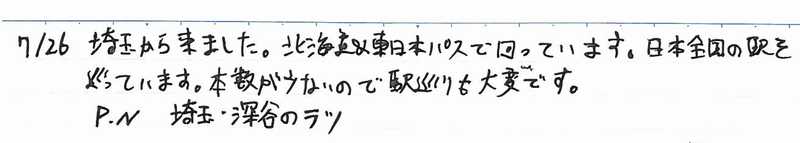 7/26 埼玉から来ました。北海道&東日本パスで回っています。日本全国の駅を
巡っています。本数が少ないので駅巡りも大変です。
P.N 埼玉・深谷のラツ